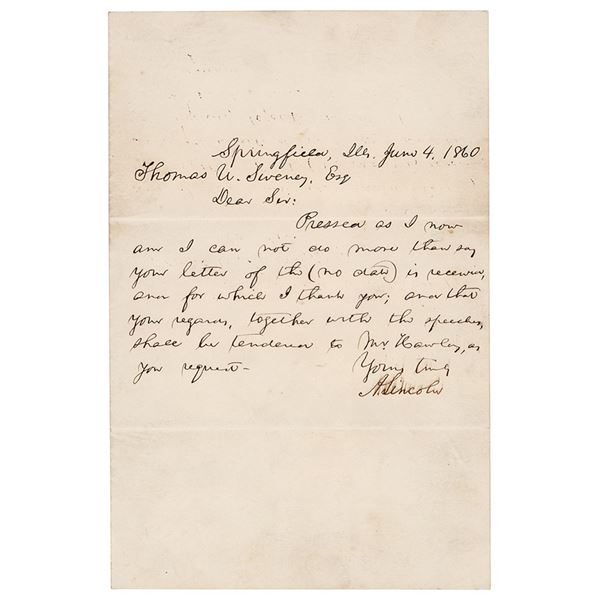 Springfield, Ills. June 4, 1860
Thomas W. Sweney, Esq
Dear Sir:
Pressed as I now
am I can not do more than say
your letter of the (no date) is received,
and for which I thank you; and that
your regards, together with the speeches,
shall be tendered to Mr. Hawley, as
you request—
Yours truly
A. Lincoln